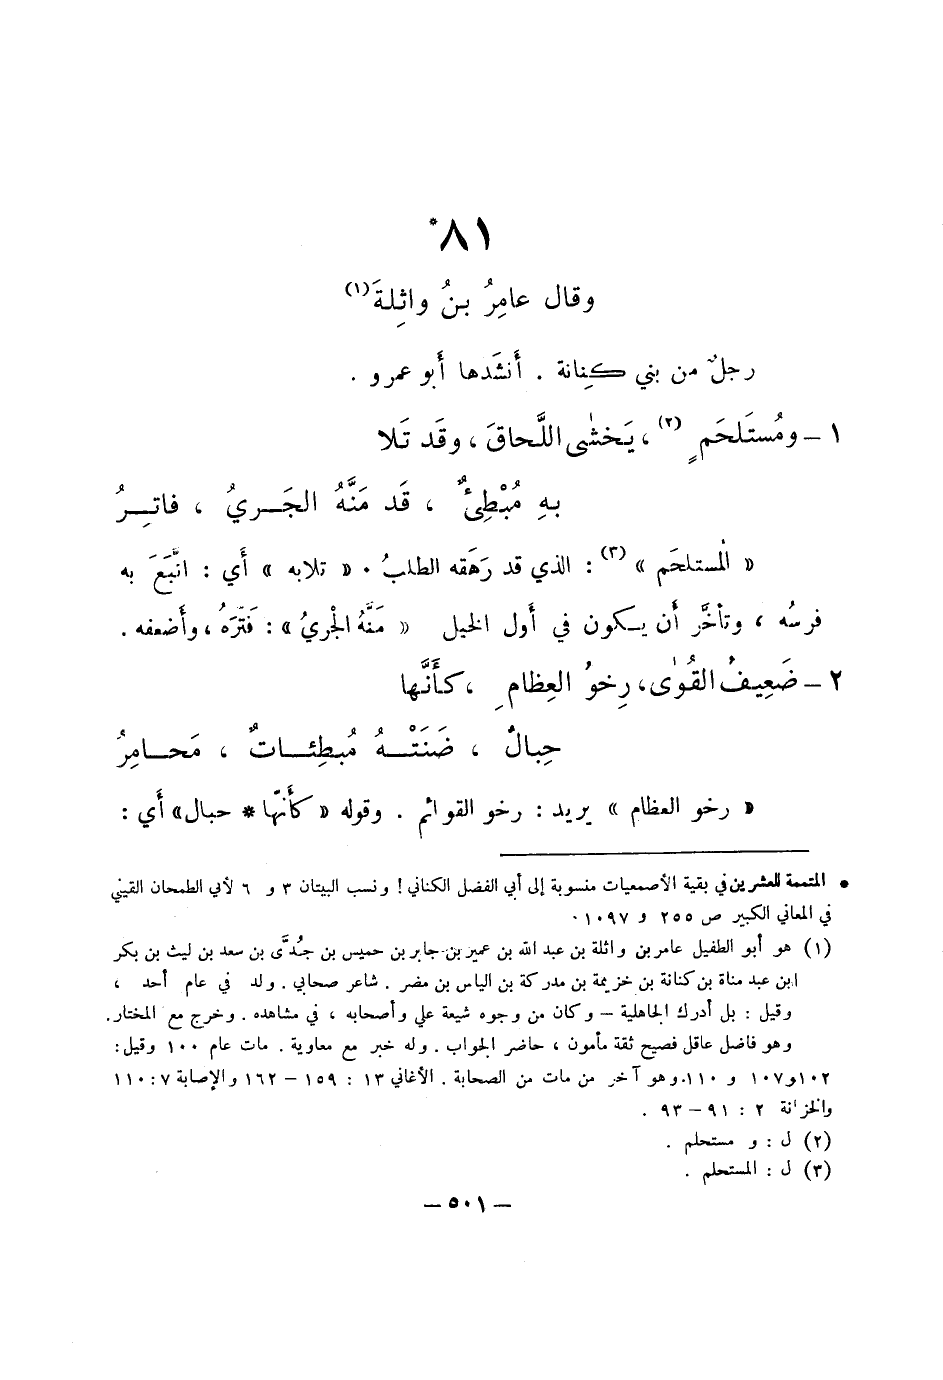 ٨١*
وقال عامِرُ بنُ واثِلةَ(١)
رجلٌ من بني كِنانة . أَنشَدها أَبو عمرو .
١ – ومُستَلحَمٍ(٢) ، يَخشٰى اللَّحاقَ ، وقَد تَلا
بهِ مُبْطِئٌ ، قَد مَنَّهُ الجَــريُ ، فاتِــرُ
« المُستلحَم »(٣) : الذي قد رَهَقه الطلبُ . « تلابه » أَي : اتَّبَعَ به
فرسُه ، وتأخَّر أَن يكون في أَول الخيل « مَنَّهُ الجْريُ » : فَتَّرَهُ ، وأَضعفه .
٢ – ضَعِيفُ القُوٰى، رِخوُ العِظامِ ، كأَنَّها
حِبالٌ ، ضَنَتْــهُ مُبطِئــاتٌ ، مَحــامِرُ
« رخو العظام » يريد : رخو القوائم . وقوله « كأَنّها * حبال» أَي :
• المتممة للعشرين في بقية الأصمعيات منسوبة إلى أبي الفضل الكناني ! ونسب البيتان ٣ و ٦ لأبي الطمحان القيني
في المعاني الكبير ص ٢٥٥ و ١٠٩٧ .
(١) هو أبو الطفيل عامر بن واثلة بن عبد الله بن عمير بن جابر بن حميس بن جُدَيّ بن سعد بن ليث بن بكر
ابن عبد مناة بن كنانة بن خزيمة بن مدركة بن الياس بن مضر . شاعر صحابي . ولد في عام أحد ،
وقيل : بل أدرك الجاهلية – وكان من وجوه شيعة علي وأصحابه ، في مشاهده . وخرج مع المختار.
وهو فاضل عاقل فصيح ثقة مأمون ، حاضر الجواب . وله خبر مع معاوية . مات عام ١٠٠ وقيل :
١٠٢ و١٠٧ و ١١٠. وهو آخر من مات من الصحابة . الأغاني ١٣ : ١٥٩ – ١٦٢ والإصابة ٧ : ١١٠
والخزانة ٢ : ٩١ – ٩٣ .
(٢) ل : و مستحلم .
(٣) ل : المستحلم .
– ٥٠١ –